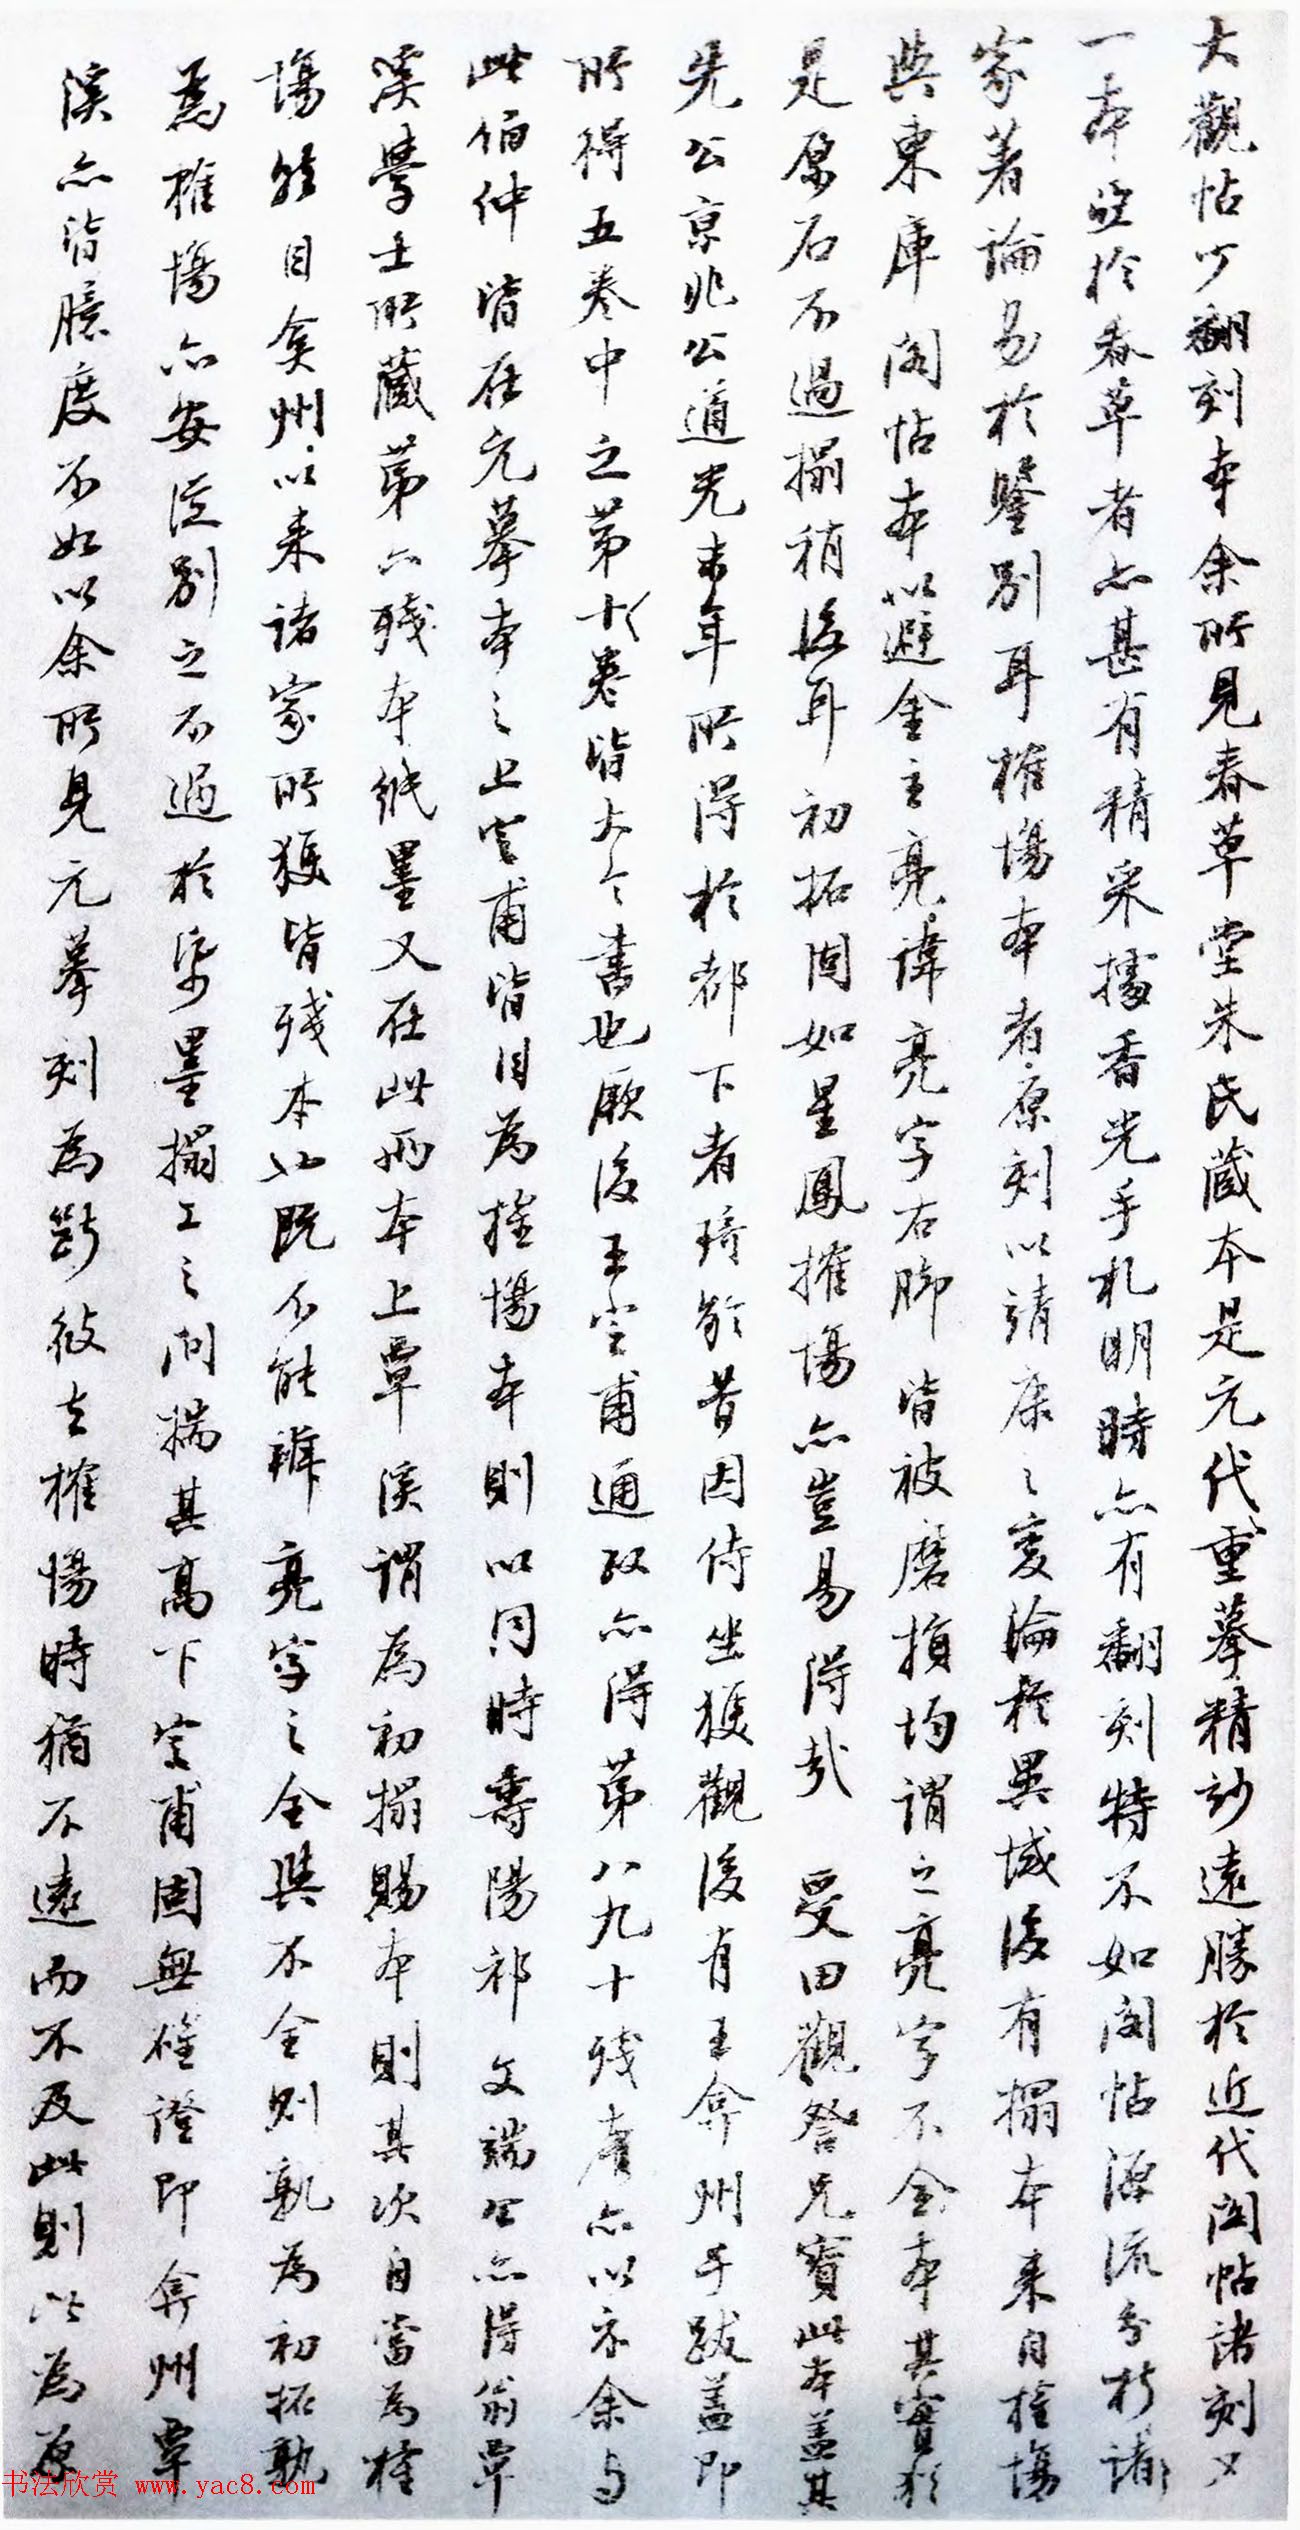 大觀帖少翻刻本余所見春草堂朱氏藏本是元代重摹精妙遠勝於近代閣帖諸刻又
一本路於春草者亦甚有精采據香光手札明時亦有翻刻特不如閣帖源流分析諸
家著論易於鑒別耳榷場本者原刻以靖康之變淪於異域後有搨本來自榷場
與東庫閣帖本以避金主亮諱亮字右脚皆被磨損均謂之亮字不全本其實猶
是原石不過搨稍後耳初拓固如星鳳榷場亦豈易得哉 受田觀詧兄寶此本蓋其
先公京兆公道光末年所得於都下者琦齡昔因侍坐獲觀後有王弇州手跋蓋即
所得五卷中之第十卷皆大令書也厥後王定甫通政亦得第八九十殘卷亦以示余與
此伯仲皆在元摹本之上定甫皆目為榷場本則以同時壽陽祁文端公亦得翁覃
溪學士所藏第六殘本紙墨又在此兩本上覃溪謂為初搨賜本則其次自當為榷
場然自弇州以來諸家所獲皆殘本此既不能辨亮字之全與不全則孰為初拓孰
為榷場亦安從別之不過於紙墨搨工之間揣其高下定甫固無確證即弇州覃
溪亦皆臆度不如以余所見元摹刻為斷彼去榷場時猶不遠而不及此則此為原
书法欣赏 www.yac8.com